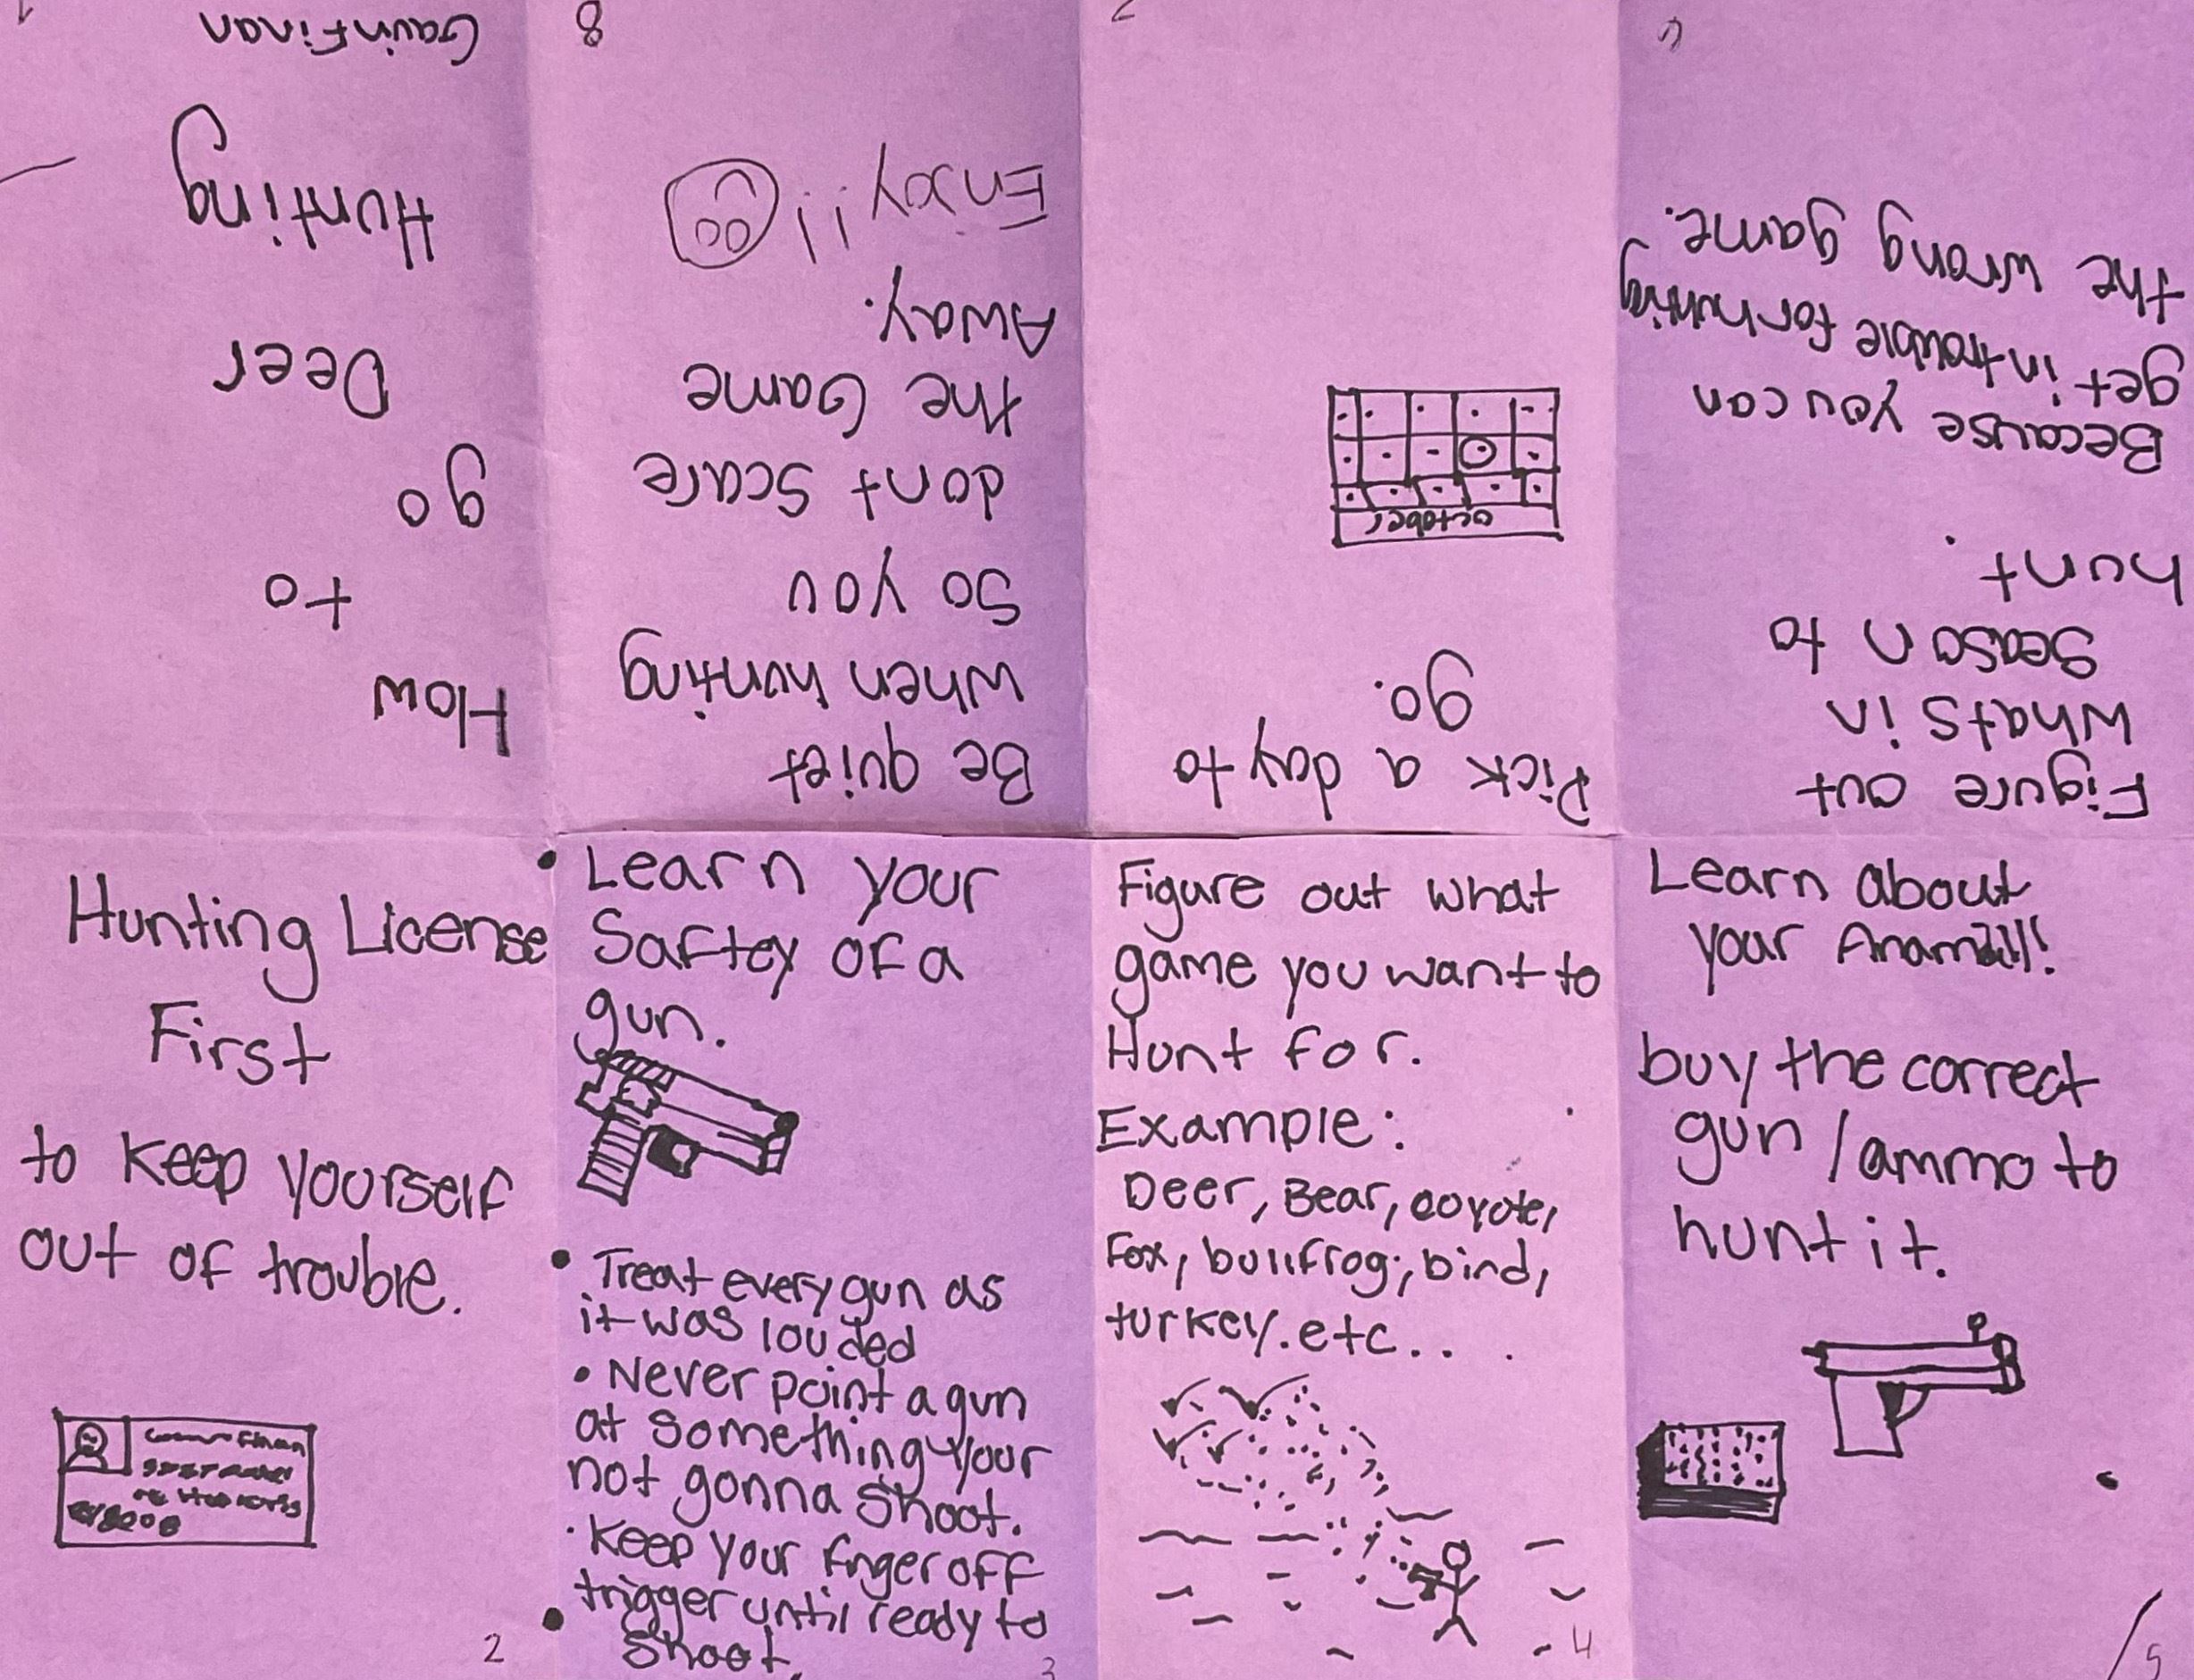 How
to
go
Deer
Hunting
Gavin Finan
Hunting License
First
to keep yourself
out of trouble.
Finan
2
Learn your
Saftey of a
gun.
Treat every gun as
it was louded
Never point a gun
at something your
not gonna shoot.
Keep your finger off
trigger until ready to
shoot.
3
Figure out what
game you want to
Hunt for.
Example:
Deer, Bear, coyote,
Fox, bullfrog, bird,
turkey.etc...
4
Learn about
your Anamal!!
buy the correct
gun/ammo to
hunt it.
5
Figure out
whats in
season to
hunt.
Because you can
get in trouble for hunting
the wrong game.
Pick a day to
go.
october
Be quiet
when hunting
So you
dont Scare
the Game
Away.
Enjoy!!
8